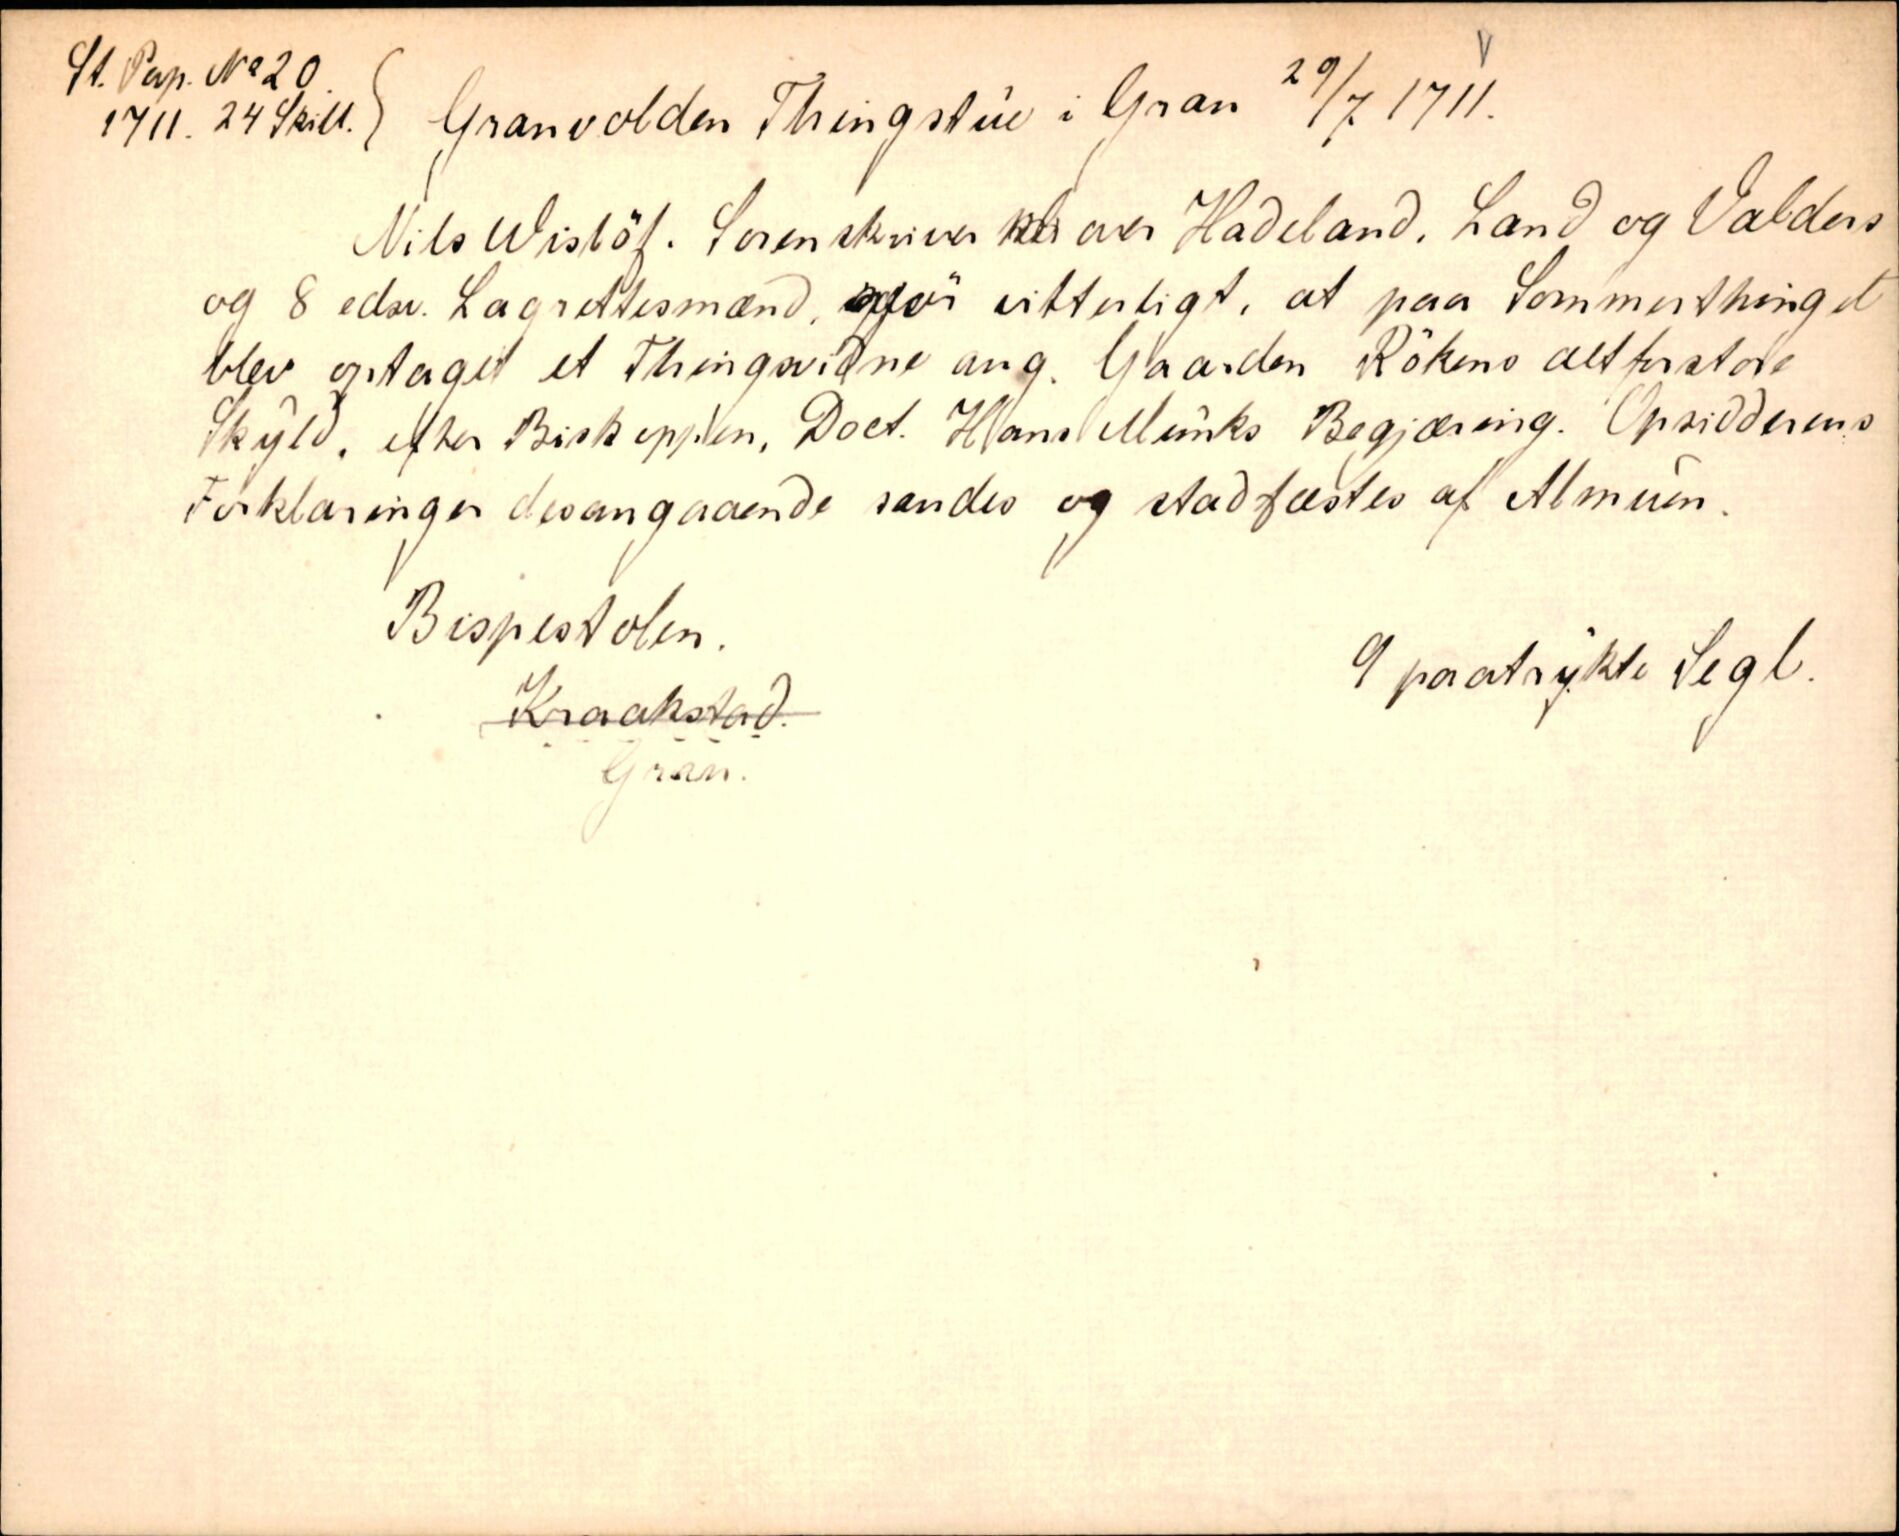 St. Pap. No 20.
1711. 24 Skill. } Granvolden Thingstue i Gran 29/7 1711.
Nils Wislöf. Sorenskriver over Hadeland, Land og Valders
og 8 edsv. Lagrettesmænd, gjör vitterligt, at paa Sommerthinget
blev optaget et Thingsvidne ang. Gaarden Rökens altforstore
Skyld, efter Biskoppen, Doct. Hans Munks Begjæring. Opsidderens
Forklaringer desangaaende sandes og stadfæstes af Almuen.
Bispestolen.
9 paatrykte Segl.
Kraakstad.
Gran.